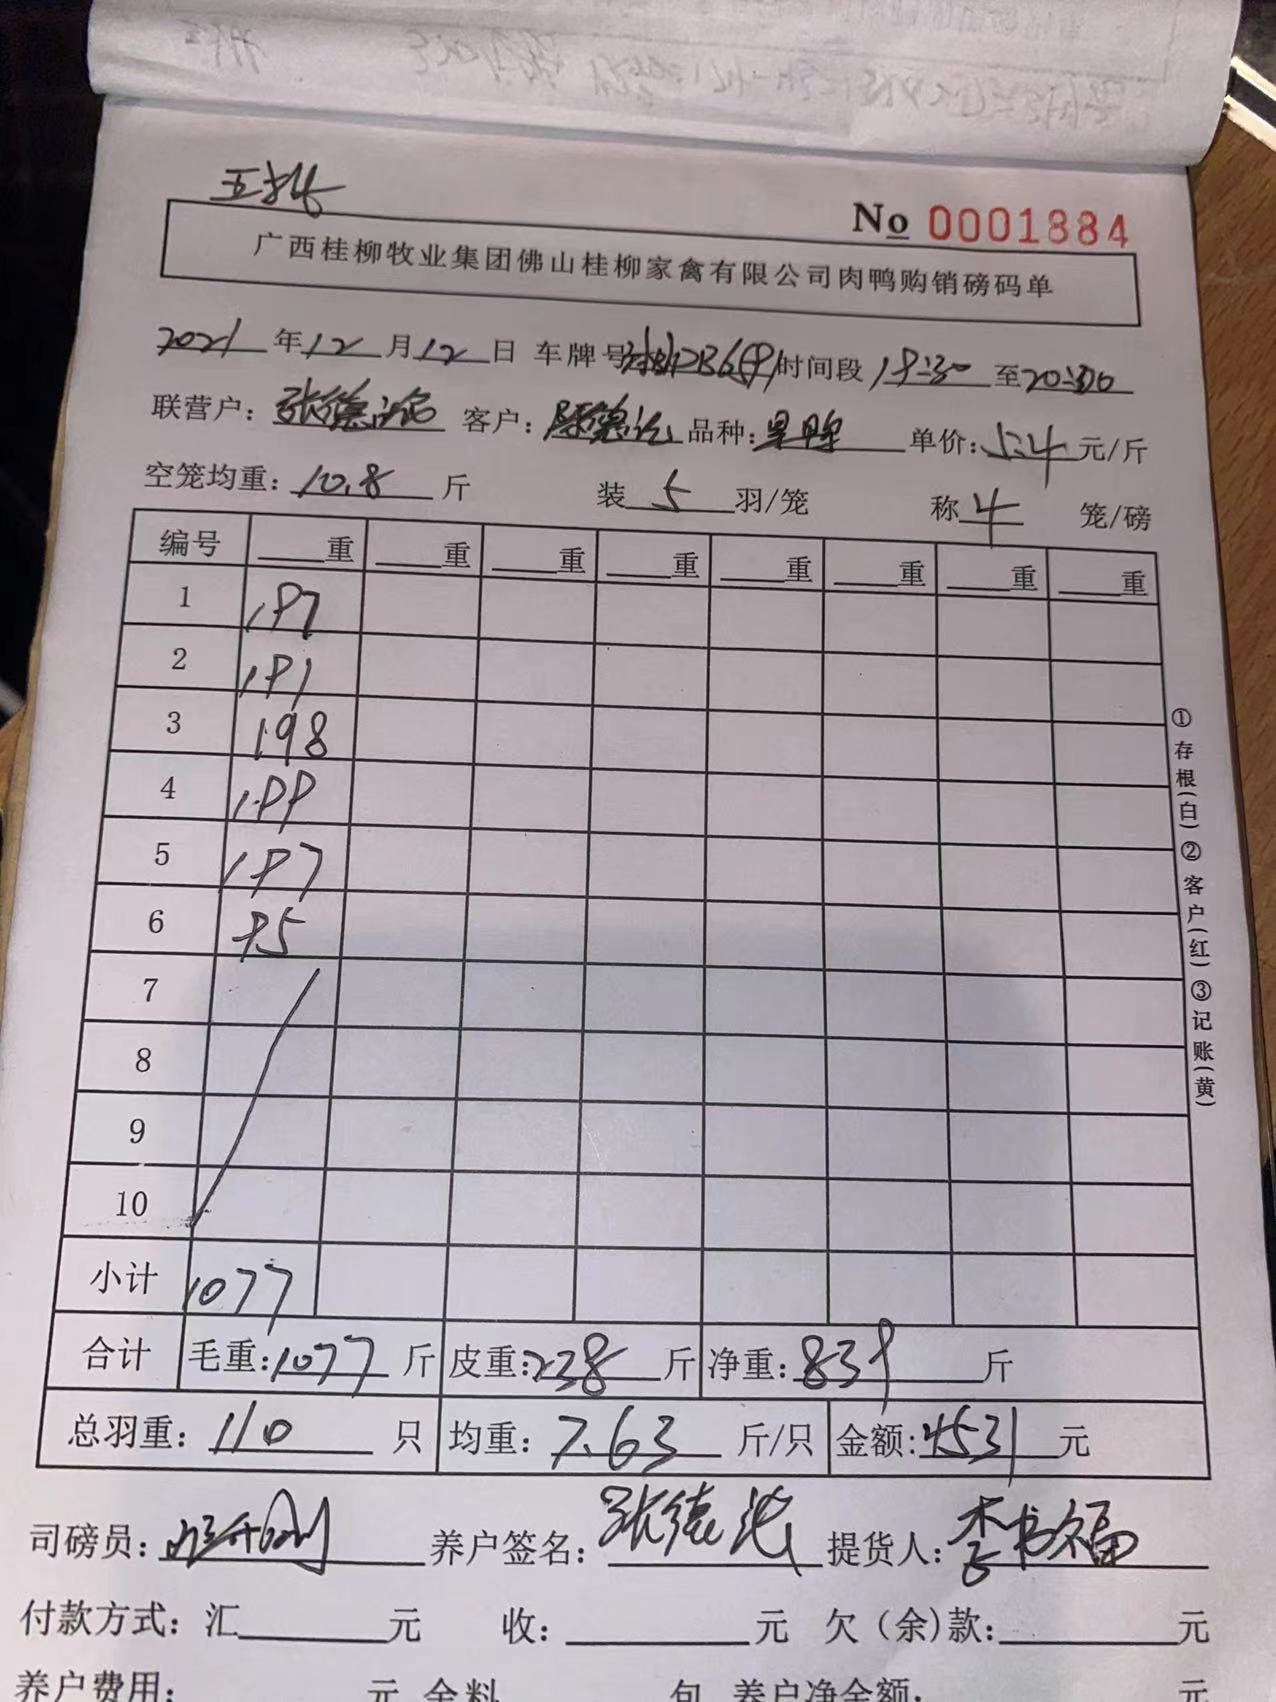 No 0001884
广西桂柳牧业集团佛山桂柳家禽有限公司肉鸭购销磅码单
2021年12月12日 车牌号 时间段19:30至20:00
联营户: 张德 客户: 德 品种: 单价:5.4元/斤
空笼均重:10.8斤 装5羽/笼 称4笼/磅
编号 重 重 重 重 重 重 重 重
1 197
2 191
3 198
4 199
5 197
6 95
7
8
9
10
小计 1077
合计 毛重:1077斤 皮重:238斤 净重:839斤
总羽重:110只 均重:7.63斤/只 金额:4531元
司磅员: 养户签名:张德 提货人:李书福
付款方式:汇 元 收: 元 欠(余)款: 元
养户费用: 元 全料 包 养户净金额: 元
①存根(白)②客户(红)③记账(黄)